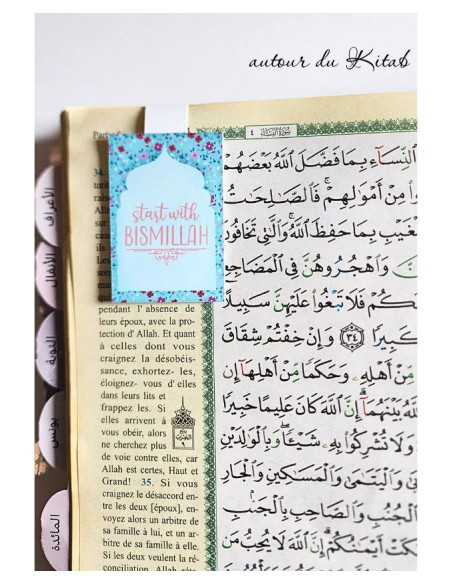 autour du Kitab
سُورَةُ النِّسَاءِ ٤
start with
BISMILLAH
34.
pendant l'absence de
leurs époux, avec la pro-
tection d'Allah. Et quant
à celles dont vous
craignez la désobéis-
sance, exhortez- les,
éloignez- vous d'elles
dans leurs lits et
frappez les. Si
elles arrivent à
vous obéir, alors
ne cherchez plus
de voie contre elles, car
Allah est certes, Haut et
Grand! 35. Si vous
craignez le désaccord en-
tre les deux [époux], en-
voyez alors un arbitre de
sa famille à lui, et un ar-
bitre de sa famille à elle.
Si les deux veulent la ré-
conciliation, Allah
النِّسَاءِ بِمَا فَضَّلَ اللَّهُ بَعْضَهُمْ
مِنْ أَمْوَالِهِمْ فَالصَّالِحَاتُ
بِمَا حَفِظَ اللَّهُ وَالَّتِي تَخَافُو
وَاهْجُرُوهُنَّ فِي الْمَضَاجِعِ
كُمْ فَلَا تَبْغُوا عَلَيْهِنَّ سَبِيلًا
كَبِيرًا ٣٤ وَإِنْ خِفْتُمْ شِقَاقَ
مِنْ أَهْلِهِ وَحَكَمًا مِنْ أَهْلِهَا إِنْ
اللَّهُ بَيْنَهُمَا إِنَّ اللَّهَ كَانَ عَلِيمًا خَبِيرًا
وَلَا تُشْرِكُوا بِهِ شَيْئًا وَبِالْوَالِدَيْنِ
بَى وَالْيَتَامَى وَالْمَسَاكِينِ وَالْجَارِ
الْجُنُبِ وَالصَّاحِبِ بِالْجَنْبِ
كَتْ أَيْمَانُكُمْ إِنَّ اللَّهَ لَا يُحِبُّ مَن
الأعراف
الأنفال
التوبة
يونس
المائدة